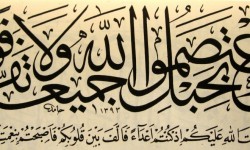 عتصموا بحبل الله جميعا ولا تفرقو
حامد ١٣٩٣
الله عليكم إذ كنتم أعداء فألف بين قلوبكم فأصبحتم بنعمت